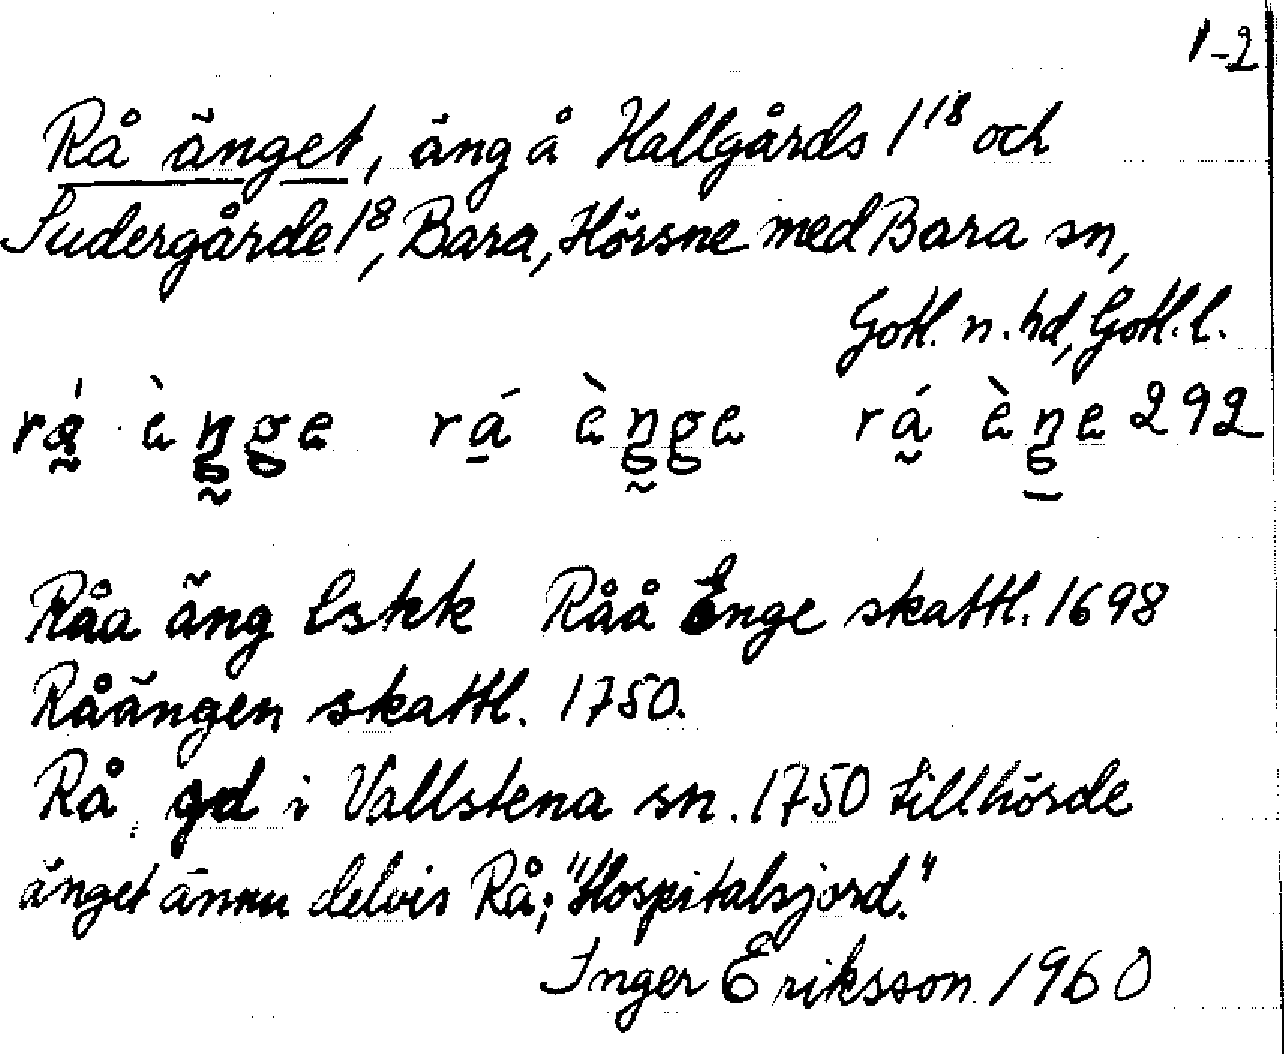 1-2
Rå änget, äng å Hallgårds 1¹⁸ och
Sudergårde 1⁸, Bara, Hörsne med Bara sn,
Gotl. n. hd, Gotl. l.
rá̰ èŋge rá̱ èŋge rá̰ èŋe 292
Råa äng Eskk Råå Enge skattl. 1698
Råängen skattl. 1750.
Rå gd i Vallstena sn. 1750 tillhörde
änget ännu delvis Rå; "Hospitalsjord."
Inger Eriksson 1960